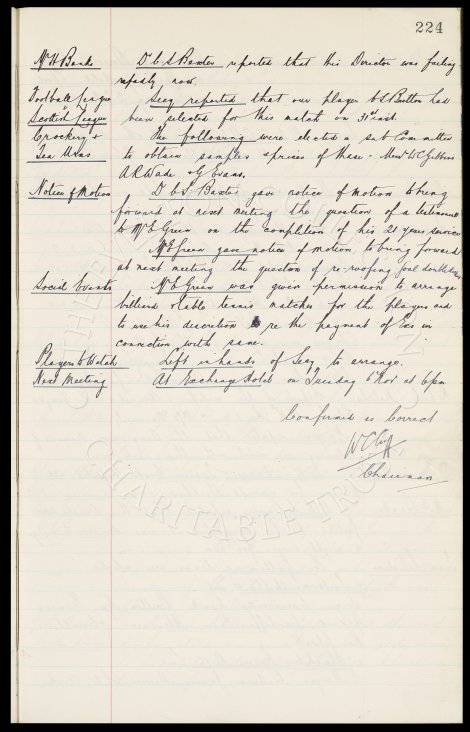 224
Mr H Banks Dr C S Baxter reported that this Director was failing
rapidly now.
Football League Secy reported that our player C S Britton had
Scottish League been selected for this match on 31st inst.
Crockery & The following were elected a sub Committee
Tea Urns to obtain samples & prices of these - Messrs W C Gibbins
A R Wade & G Evans.
Notice of Motion Dr C S Baxter gave notice of motion to bring
forward at next meeting the question of a testimonial
to Mr E Green on the completion of his 21 years service
Mr E Green gave notice of motion, to bring forward
at next meeting the question of re-roofing Goodison
Social Events Mr E Green was given permission to arrange
billiard & table tennis matches for the players and
to use his discretion re the payment of Exs in
connection with same.
Players to Watch Left in hands of Secy to arrange.
Next Meeting At Exchange Hotel on Tuesday 6 Nov at 6pm
Confirmed as Correct
W C Cuff
Chairman
CHARITABLE TRUST